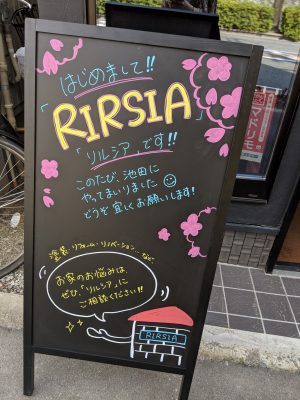 はじめまして!!
「RIRSIA」
「リルシア」です!!
このたび、池田に
やってまいりました
どうぞ宜しくお願いします!
塗装・リフォーム・リノベーション…など
お家のお悩みは、
ぜひ、「リルシア」に
ご相談ください!!
RIRSIA
マドリモ